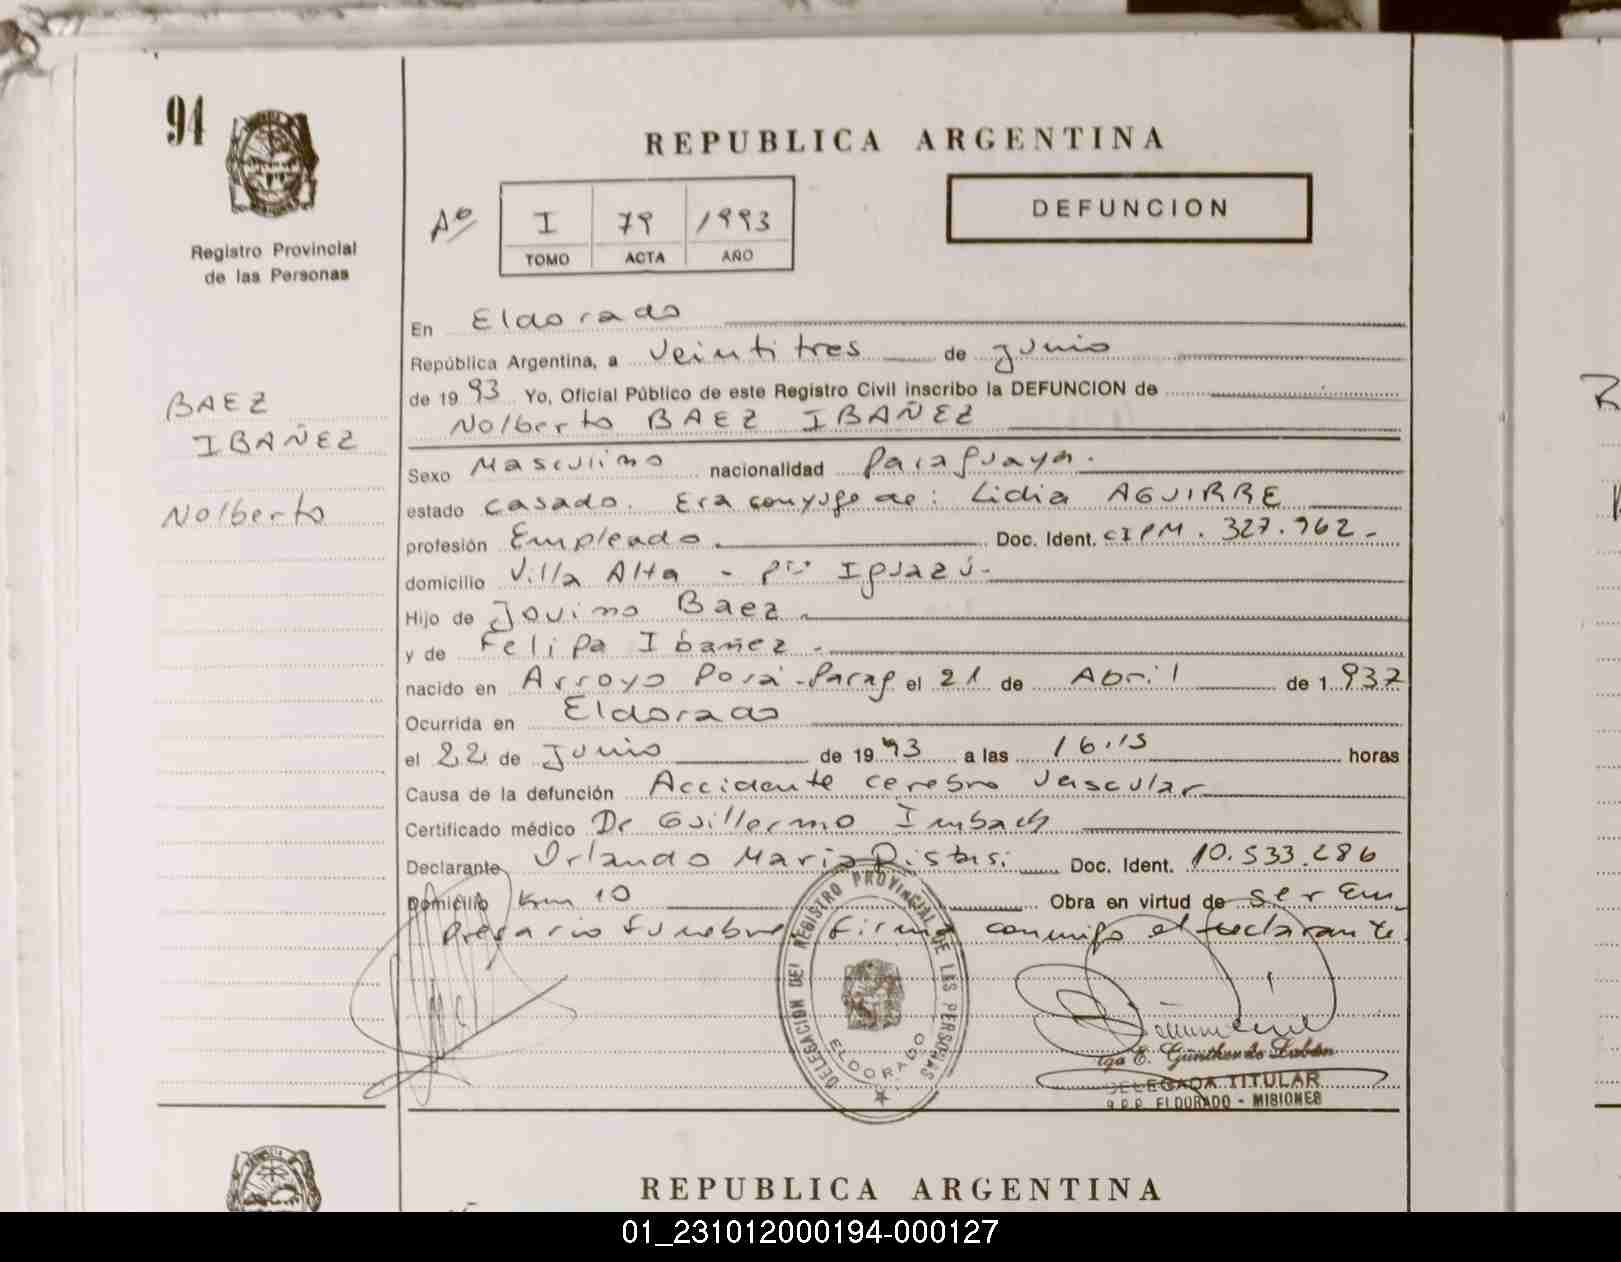 94
REPUBLICA ARGENTINA
Registro Provincial
de las Personas
Aº I 79 1993
TOMO ACTA AÑO
DEFUNCION
En Eldorado
República Argentina, a Veintitres de Junio
de 1993 Yo, Oficial Público de este Registro Civil inscribo la DEFUNCION de
BAEZ
IBAÑEZ
Nolberto
Nolberto BAEZ IBAÑEZ
Sexo Masculino nacionalidad Paraguaya.
estado Casado. Era conyuge de: Lidia AGUIRRE
profesión Empleado. Doc. Ident. CIPM. 327.962.-
domicilio Villa Alta - Pto Iguazú.-
Hijo de Jovino Baez.
y de Felipa Ibañez.
nacido en Arroyo Porá-Parag el 21 de Abril de 1937
Ocurrida en Eldorado
el 22 de Junio de 1993 a las 16.15 horas
Causa de la defunción Accidente cerebro Vascular
Certificado médico Dr Guillermo Imbach
Declarante Orlando Mario Doc. Ident. 10.533.286
Domicilio Km 10 Obra en virtud de ser Em
presario funebre firma conmigo el declarante
DELEGACION DEL REGISTRO PROVINCIAL DE LAS PERSONAS
ELDORADO
E. Günther de Labán
DELEGADA TITULAR
R.P.P. ELDORADO - MISIONES
REPUBLICA ARGENTINA
01_231012000194-000127